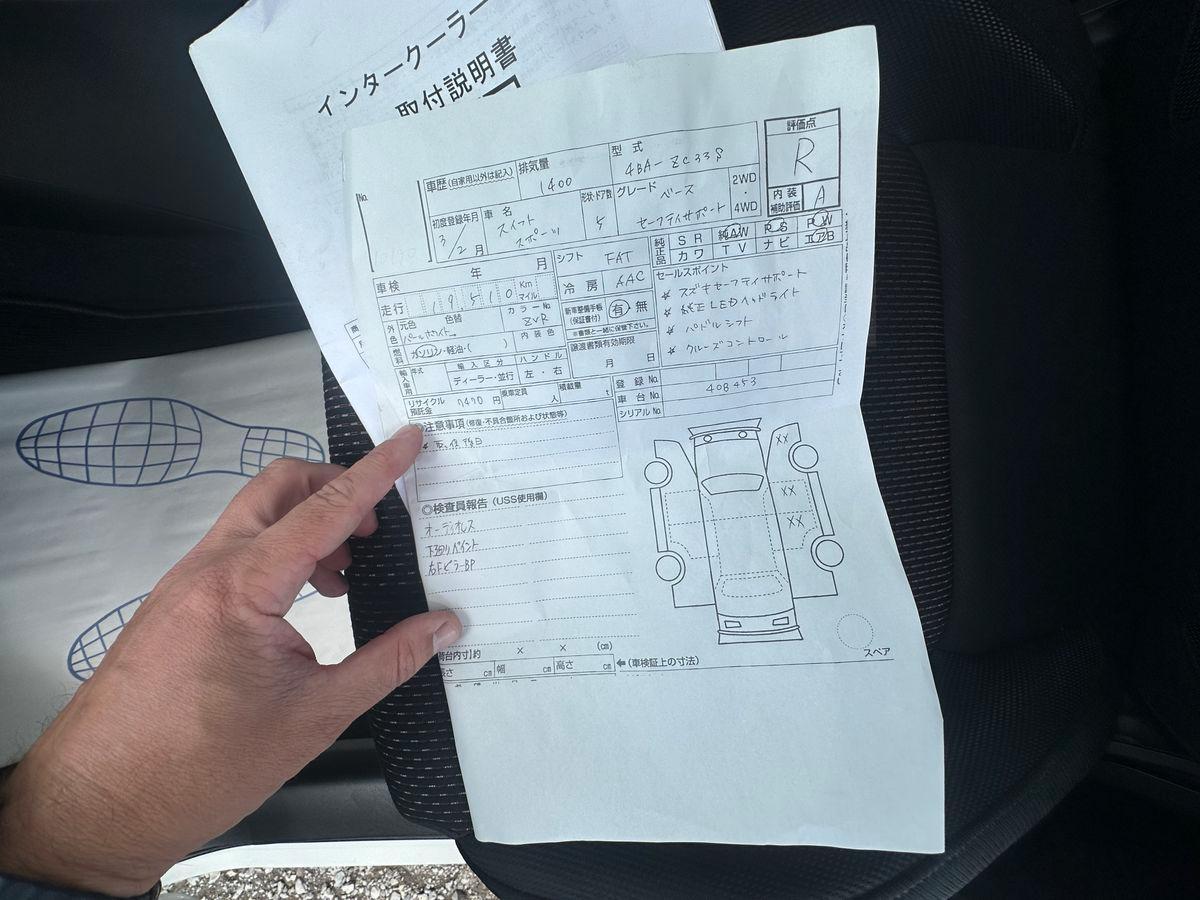 インタークーラー
取付説明書
No.
車歴(自家用以外は記入)
排気量 1400
型式 4BA-ZC33S
評価点 R
内装補助評価 A
初度登録年月 3/2月
車名 スイフト スポーツ
形状・ドア数 5
グレード ベース セーフティサポート
2WD・4WD
車検 年 月
シフト FAT
純正品 SR 純AW PS PW
カワ TV ナビ エアB
走行 19510 Km マイル
冷房 AAC
セールスポイント
☆ スズキセーフティサポート
☆ 純正LEDヘッドライト
☆ パドルシフト
☆ クルーズコントロール
外色 元色 パールホワイト 色替 カラーNo. ZVR
新車整備手帳(保証書付) 有・無
※書類と一緒に保管下さい。
燃料 ガソリン・軽油・( ) 内装色
譲渡書類有効期限 月 日
輸入車用 年式 輸入区分 ディーラー・並行 ハンドル 左・右
リサイクル預託金 7470円 乗車定員 人 積載量 t
登録No.
車台No. 408453
シリアルNo.
注意事項(修復・不具合箇所および状態等)
◎検査員報告(USS使用欄)
オーディオレス
下廻りペイント
右FピラーBP
XX
XX
XX
荷台内寸)約 × × (cm)
長さ cm 幅 cm 高さ cm ←(車検証上の寸法)
スペア